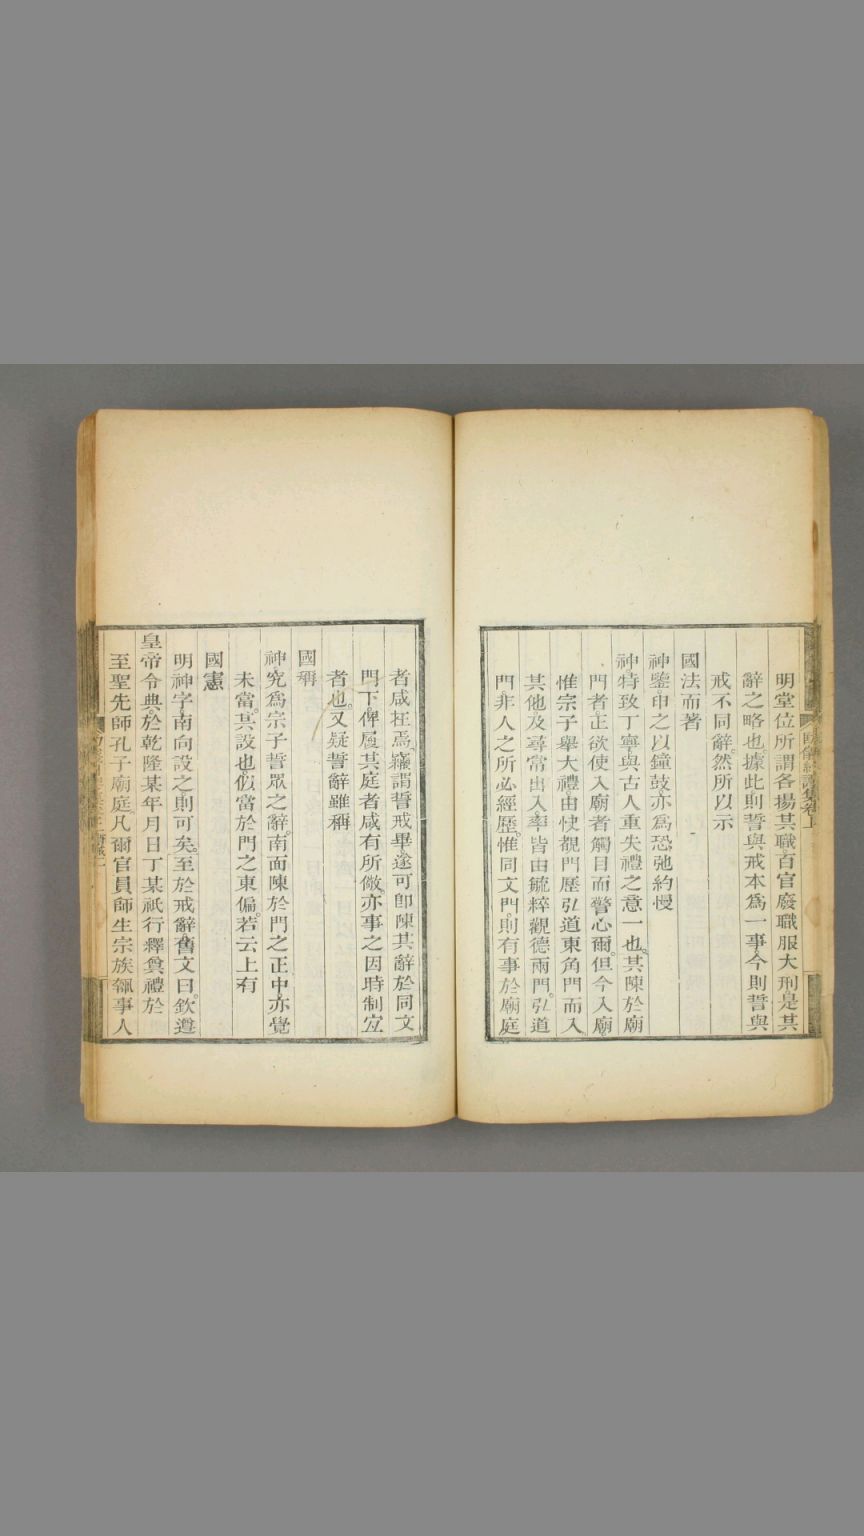 明堂位所謂各揚其職百官廢職服大刑是其
辭之略也據此則誓與戒本爲一事今則誓與
戒不同辭然所以示
國法而著
神鑒申之以鐘鼓亦爲恐弛約慢
神特致丁寧與古人重失禮之意一也其陳於廟
門者正欲使入廟者觸目而警心爾但今入廟
惟宗子舉大禮由快覩門歷弘道東角門而入
其他及尋常出入率皆由毓粹觀德兩門弘道
門非人之所必經歷惟同文門則有事於廟庭
者咸在焉竊謂誓戒畢遂可卽陳其辭於同文
門下俾履其庭者咸有所儆亦事之因時制宜
者也又疑誓辭雖稱
國稱
神究爲宗子誓眾之辭南面陳於門之正中亦覺
未當其設也似當於門之東偏若云上有
國憲
明神字南向設之則可矣至於戒辭舊文曰欽遵
皇帝令典於乾隆某年月日丁某祇行釋奠禮於
至聖先師孔子廟庭凡爾官員師生宗族執事人